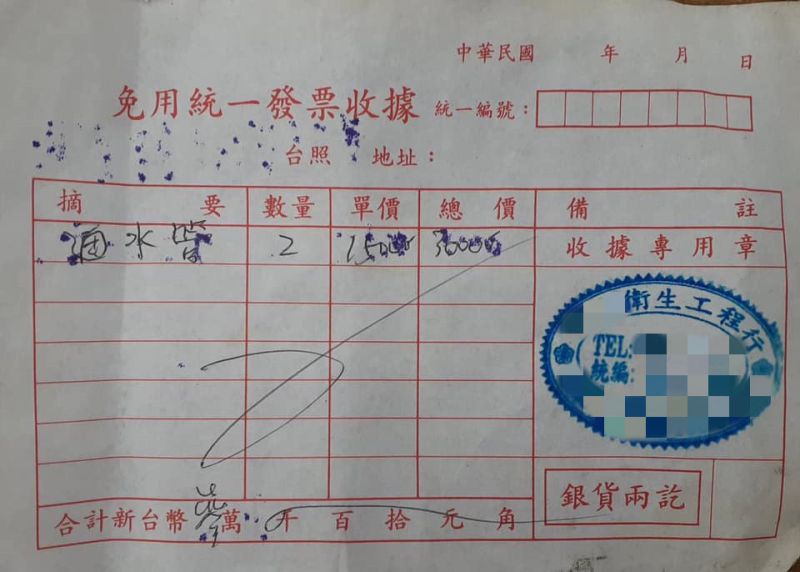 中華民國 年 月 日
免用統一發票收據 統一編號：
台照 地址：
摘要 數量 單價 總價 備註
水 2 收據專用章
衛生工程行
TEL:
統編:
合計新台幣 萬 千 百 拾 元 角
銀貨兩訖